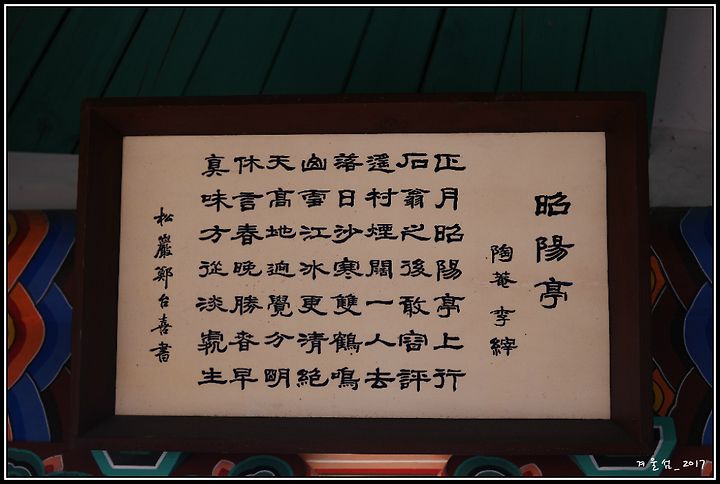 昭陽亭
陶菴 李縡
正月昭陽亭上行
石翁之後敢容評
遥村煙闊一人去
落日沙寒雙鶴鳴
雪江冰更清絶
天高地逈覺分明
休言春晚勝春早
真味方從淡處生
松巖鄭台喜書
겨울섬_2017